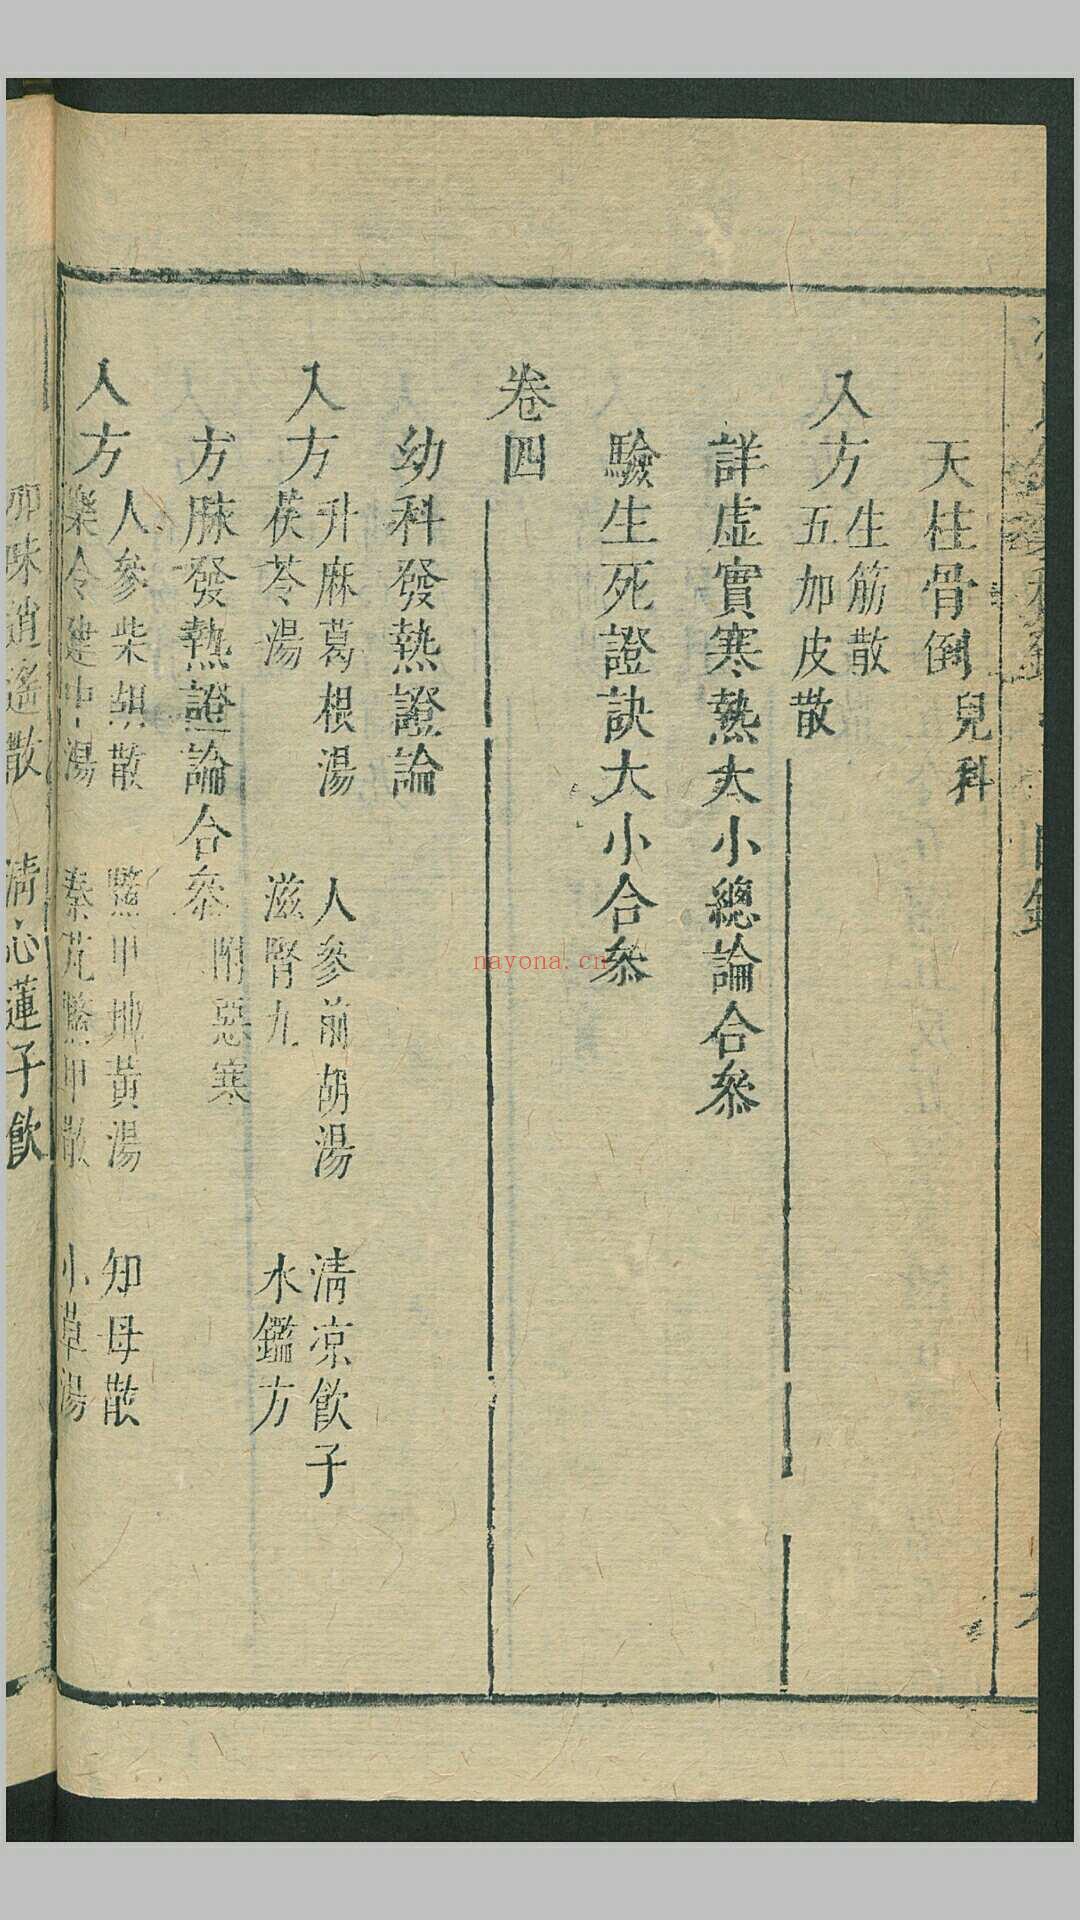 天柱骨倒 兒科
入方 生筋散
五加皮散
詳虛實寒熱大小總論合參
驗生死證訣大小合參
卷四
幼科發熱證論
入方 升麻葛根湯 人參前胡湯 清凉飲子
茯苓湯 滋腎丸 水鑑方
方脉發熱證論合參 附惡寒
入方 人參柴胡散 鱉甲地黃湯 知母散
樂令建中湯 秦艽鱉甲散 小草湯
逍遙散 清心蓮子飲
nayona.cn